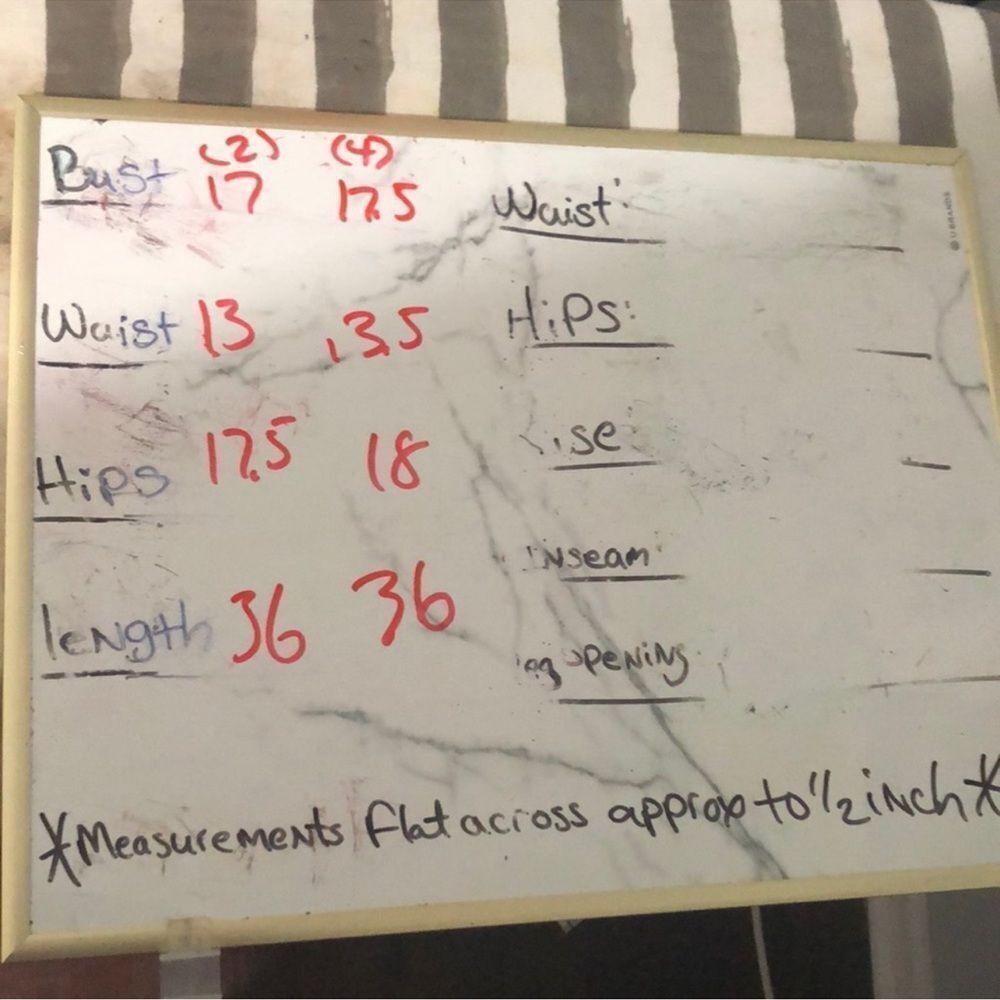 (2) (4)
Bust 17 17.5
Waist 13 13.5
Hips 17.5 18
length 36 36
Waist:
Hips:
ise
inseam
eg opening
*Measurements flat across approx to 1/2 inch*
U BRANDS